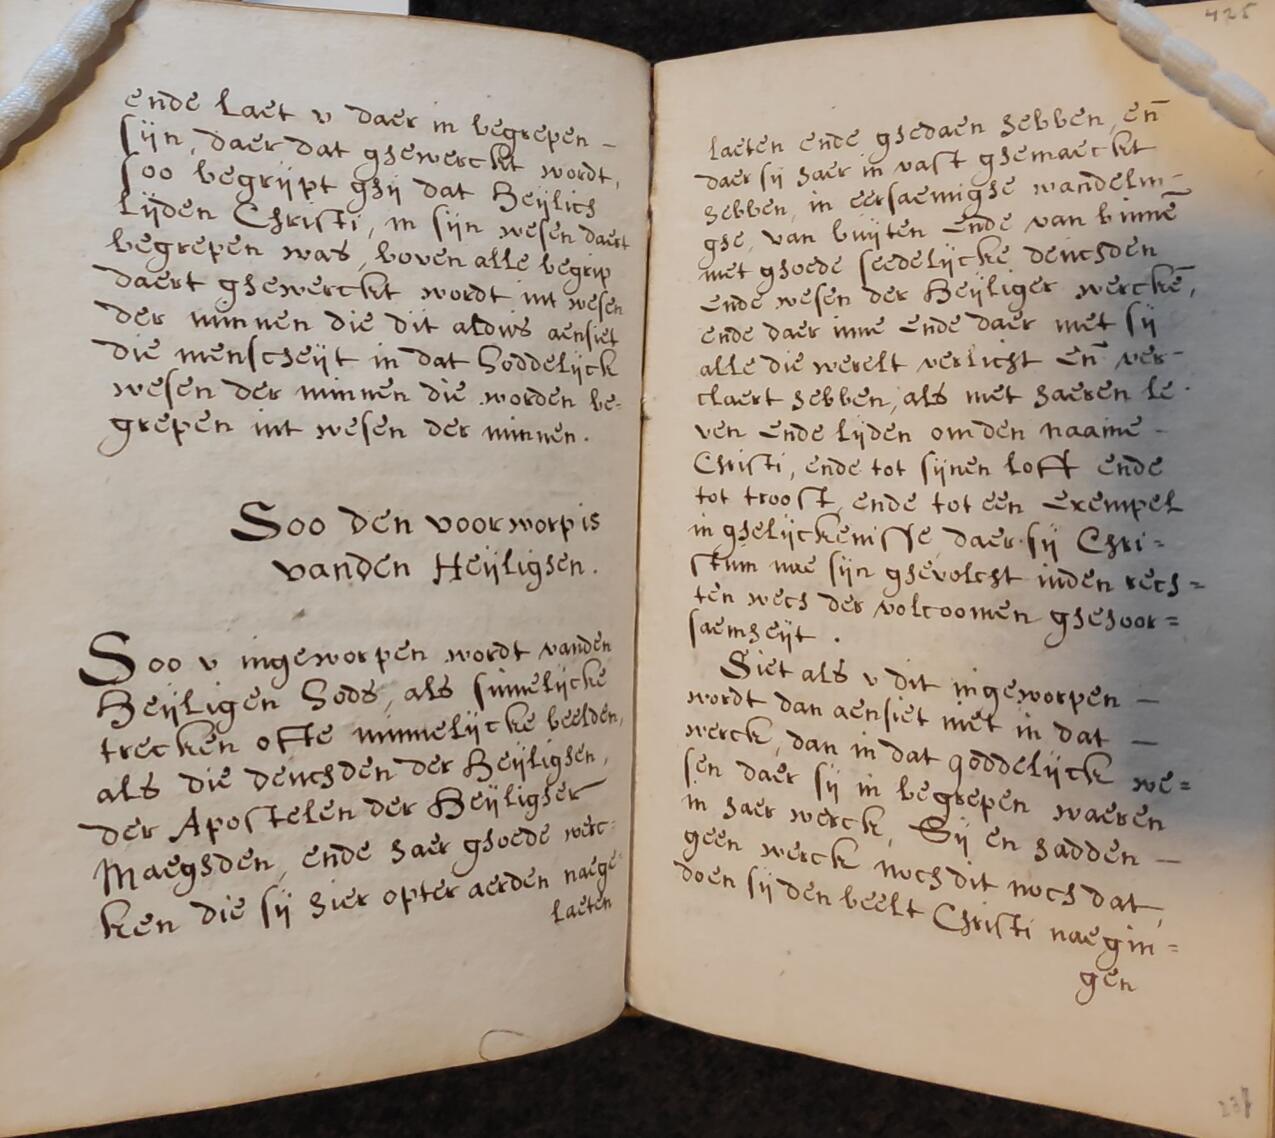 ende laet v daer in begrepen –
sijn, daer dat ghewerckt wordt,
soo begrijpt ghij dat Heijlich
Lijden Christi, in sijn wesen daert
begrepen was, boven alle begrip
daert ghewerckt wordt int wesen
der minnen die dit aldus aensiet
die menscheijt in dat Goddelijck
wesen der minnen die worden be=
grepen int wesen der minnen.
Soo den voorworp is
vanden Heijlighen.
Soo v ingeworpen wordt vanden
Heijligen Gods, als sinnelijcke
trecken ofte minnelijcke beelden,
als die deuchden der Heijlighen,
der Apostelen der Heijligher
Maeghden, ende haer ghoede werc=
ken die sij hier opter aerden naege=
laeten
425
laeten ende ghedaen hebben, en̄
daer sij haer in vast ghemaeckt
hebben, in eersaemighe wandelin=
ghe, van buijten ende van binnē
met ghoede seedelijcke deuchden
ende wesen der Heijliger werckē,
ende daer inne ende daer met sij
alle die werelt verlicht en̄ ver=
claert hebben, als met haeren le=
ven ende lijden om den naame –
Christi, ende tot sijnen loff ende
tot troost, ende tot een exempel
in ghelijckenisse, daer sij Chri=
stum nae sijn ghevolcht inden rech=
ten wech der volcoomen ghehoor=
saemheijt .
Siet als v dit ingeworpen –
wordt dan aensiet niet in dat –
werck, dan in dat goddelijck we=
sen daer sij in begrepen waeren
in haer werck, Sij en hadden –
geen werck noch dit noch dat,
doen sij den beelt Christi naegin=
gen
237